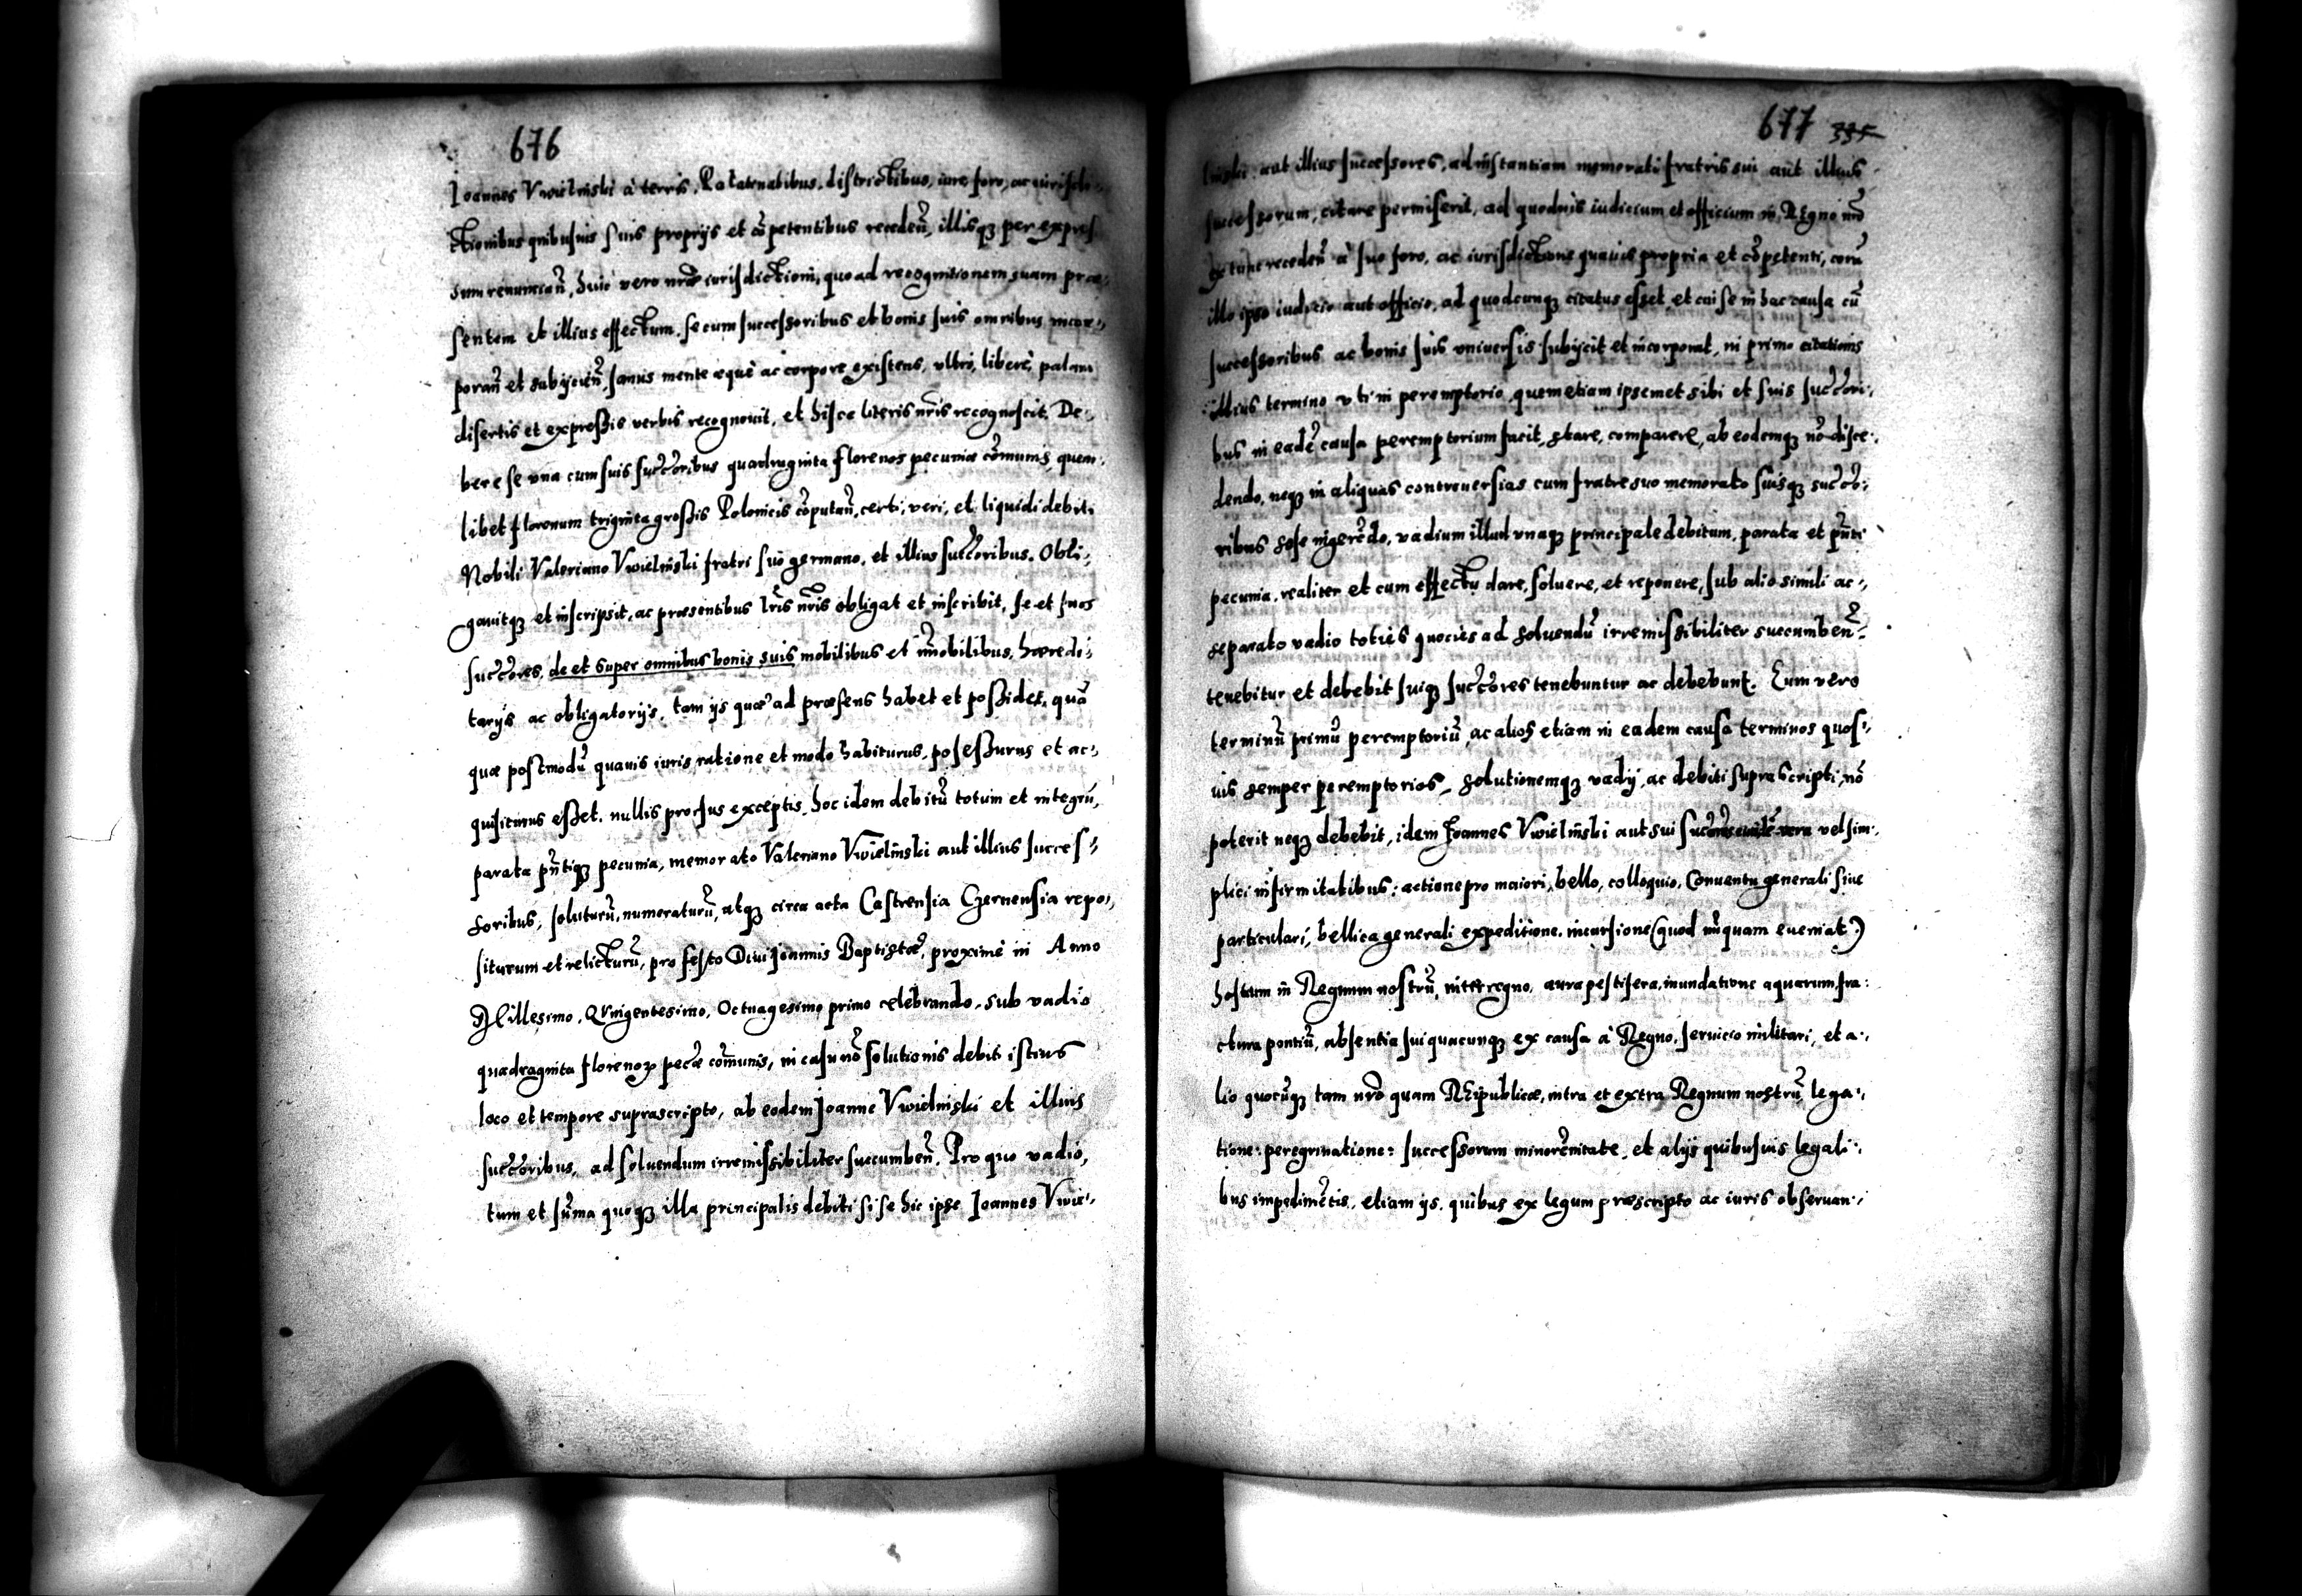 676
Joannes Vwielinski à terris, Palatinatibus, districtibus, iure, foro, ac iurisdi-
ctionibus quibusuis suis proprijs et cõpetentibus receden̄, illisq3 per expres
sum renuncian̄, huic vero nr̄æ iurisdictioni, quo ad recognitionem suam præ-
sentem et illius effectum, se cum successoribus et bonis suis omnibus incor-
poran̄ et subijcien̄, sanus mente æquè ac corpore existens, vltro, liberè, palam
disertis et expressis verbis recognouit, et hisce literis nr̄is recognoscit. De-
bere se vna cum suis succ̄oribus quadraginta florenos pecuniæ cōmunis, quem-
libet florenum triginta grossis Polonicis cōputan̄, certi, veri, et liquidi debiti
Nobili Valeriano Vwielinski fratri suo germano, et illius succ̄oribus. Obli-
gauitq3 et inscripsit, ac præsentibus lr̄is nr̄is obligat et inscribit, se et suos
succ̄ores, de et super omnibus bonis suis mobilibus et im̄obilibus, hæredi-
tarijs ac obligatorijs, tam ijs quæ ad præsens habet et possidet, quā
quæ postmodū quauis iuris ratione et modo habiturus, possessurus et ac-
quisiturus esset, nullis prorsus exceptis, hoc idem debitū totum et integrū,
parata pn̄tiq3 pecunia, memorato Valeriano Vwielinski aut illius succes-
soribus, soluturū, numeraturū, atq3 circa acta Castrensia Czernensia repo-
siturum et relicturū, pro festo Diui Joannis Baptistæ, proximè in Anno
Millesimo, Qvingentesimo, Octuagesimo primo celebrando, sub vadio
quadraginta florenoꝝ pec̄æ com̄unis, in casu nō solutionis debiti istius
loco et tempore suprascripto, ab eodem Joanne Vwielinski et illius
succ̄oribus, ad soluendum irremissibiliter succumben̄. Pro quo vadio,
tum et sum̄a quoq3 illa principalis debiti si se hic ipse Joannes Vwie-
677 335
linski aut illius successores, ad instantiam memorati fratris sui aut illius
successorum, citare permiserit, ad quoduis iudicium et officium in Regno nr̄o
ex tunc receden̄ à suo foro, ac iurisdictione quauis propria et cōpetenti, corā
illo ipso iudicio aut officio, ad quodcunq3 citatus esset et cui se in hac causa cū
successoribus ac bonis suis vniuersis subijcit et incorporat, in primo citationis
illius termino vti in peremptorio, quem etiam ipsemet sibi et suis succ̄ori-
bus in eadē causa peremptorium facit, stare, comparere, ab eodemq3 nō disce-
dendo, neq3 in aliquas controuersias cum fratre suo memorato suisq3 succ̄o-
ribus sese ingerēdo, vadium illud vnaq3 principale debitum, parata et pn̄ti
pecunia, realiter et cum effectu dare, soluere, et reponere, sub alio simili ac-
separato vadio toties quoties ad soluendū irremissibiliter succumben̄
tenebitur et debebit suiq3 succ̄ores tenebuntur ac debebunt. Eum vero
terminū primū peremptoriū, ac alios etiam in eadem causa terminos quos-
uis semper peremptorios, solutionemq3 vadij, ac debiti suprascripti, nō
poterit neq3 debebit, idem Joannes Vwielinski aut sui succ̄ores euitare vera vel sim-
plici infirmitatibus: actione pro maiori, bello, colloquio, Conuentu generali siue
particulari, bellica generali expeditione, incursione (quod nūquam eueniat)
hostium in Regnum nostrū, interregno, aura pestifera, inundatione aquarum, fra-
ctura pontiū, absentia sui quacunq3 ex causa à Regno, seruicio militari, et a-
lio quocūq3 tam nr̄o quam REipublicæ, intra et extra Regnum nostrū, lega-
tione: peregrinatione: successorum minorēnitate, et alijs quibusuis legali-
bus impedimētis, etiam ijs, quibus ex legum præscripto ac iuris obseruan-